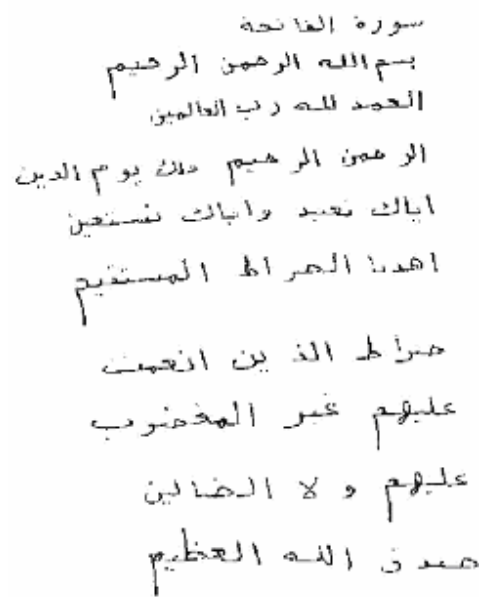 سورة الفاتحة
بسم الله الرحمن الرحيم
الحمد لله رب العالمين
الرحمن الرحيم ملك يوم الدين
اياك نعبد واياك نستعين
اهدنا الصراط المستقيم
صراط الذين انعمت
عليهم غير المغضوب
عليهم ولا الضالين
صدق الله العظيم